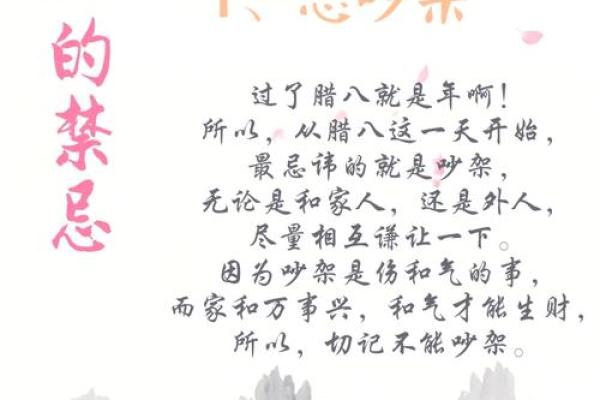 1、忌吵架
的禁忌
过了腊八就是年啊！
所以，从腊八这一天开始，
最忌讳的就是吵架，
无论是和家人，还是外人，
尽量相互谦让一下。
因为吵架是伤和气的事，
而家和万事兴，和气才能生财，
所以，切记不能吵架。